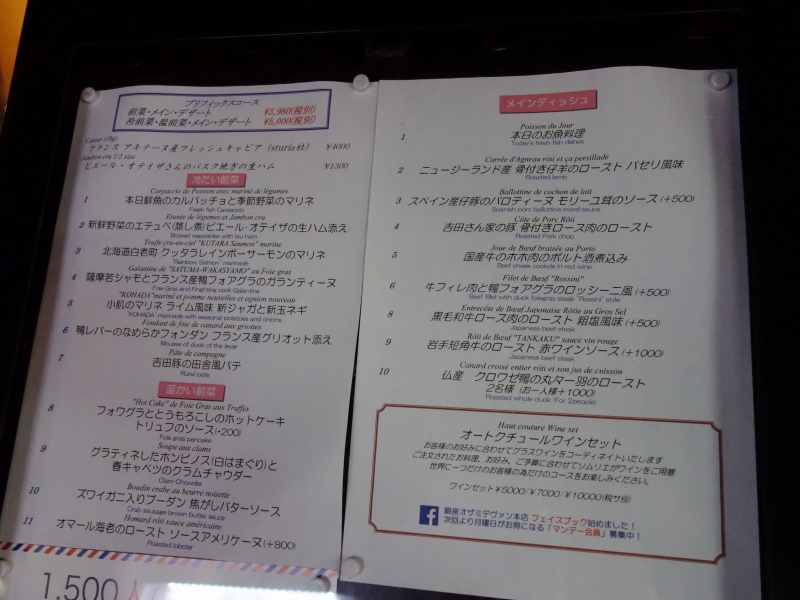 プリフィックスコース
前菜・メイン・デザート ¥3,980(税別)
冷前菜・温前菜・メイン・デザート ¥5,000(税別)
Caviar (10g)
フランス アキテーヌ産フレッシュキャビア (sturia社) ¥4000
Jambon cru 1/2 size
ピエール・オテイザさんのバスク地方の生ハム ¥1300
冷たい前菜
Carpaccio de Poisson avec mariné de légumes
1 本日鮮魚のカルパッチョと季節野菜のマリネ
Fresh fish Carpaccio
Etuvée de légumes et Jambon cru
2 新鮮野菜のエテュベ(蒸し煮)ピエール・オテイザの生ハム添え
Braised vegetables with
Truite cru-en-ciel "KUTARA Saumon" marine
3 北海道白老町 クッタラレインボーサーモンのマリネ
"Rainbow Salmon" marinade
Galantine de "SATUMA-WAKASYAMO" au Foie gras
4 薩摩若シャモとフランス産鴨フォアグラのガランティーヌ
Foie Gras and Fighting cook Galantine
"KOHADA" mariné et pomme nouvelles et ognion nouveau
5 小肌のマリネ ライム風味 新ジャガと新玉ネギ
"KOHADA" marinade with seasonal potatoes and onions
Fondant de foie de canard aux griottes
6 鴨レバーのなめらかフォンダン フランス産グリオット添え
Mousse of duck of the lever
Pâte de campagne
7 吉田豚の田舎風パテ
Rural pate
温かい前菜
"Hot Cake" de Foie Gras aux Truffes
8 フォワグラととうもろこしのホットケーキ
トリュフのソース(+200)
Foie gras pancake
Soupe aux clams
9 グラティネしたホンビノス(白はまぐり)と
春キャベツのクラムチャウダー
Clam-Chowder
Boudin crabe au beurre noisette
10 ズワイガニ入りブーダン 焦がしバターソース
Crab sausage brown butter sauce
Homard rôti sauce américaine
11 オマール海老のロースト ソースアメリケーヌ(+800)
Roasted lobster
1,500人
メインディッシュ
Poisson du Jour
1 本日のお魚料理
Today's fresh fish dishes
Carrée d'Agneau rôti et ça persillade
2 ニュージーランド産 骨付き仔羊のロースト パセリ風味
Roasted lamb
Ballottine de cochon de lait
3 スペイン産仔豚のバロティーヌ モリーユ茸のソース(+500)
Spanish porc ballottine morel sauce
Côte de Porc Rôti
4 吉田さん家の豚 骨付きロース肉のロースト
Roasted Pork chop
Joue de Bœuf braisée au Porto
5 国産牛のホホ肉のポルト酒煮込み
Beef cheek cookde in red wine
Filet de Bœuf "Rossini"
6 牛フィレ肉と鴨フォアグラのロッシー二風(+500)
Beef fillet with duck foiegras steak "Rossini" style
Entrecôte de Bœuf Japonaise Rôtie au Gros Sel
8 黒毛和牛ロース肉のロースト 粗塩風味(+500)
Japanese beef steak
Rôti de Bœuf "TANKAKU" sauce vin rouge
9 岩手短角牛のロースト 赤ワインソース(+1000)
Japanese beef steak
Canard croisé entier rôti et son jus de cuisson
10 仏産 クロワゼ鴨の丸々一羽のロースト
2名様 (お一人様+1000)
Roasted whole duck (For 2people)
Haut couture Wine set
オートクチュールワインセット
お客様のお好みに合わせてグラスワインをコーディネイトいたします
ご注文されたお料理、お好み、ご予算に合わせてソムリエがワインをご用意
世界に一つだけのお客様の為だけのコースをお楽しみください。
ワインセット¥5000/¥7000/¥10000(税サ別)
銀座オザミデヴァン本店 フェイスブック始めました!
次回より月曜日がお得になる「マンデー会員」募集中!